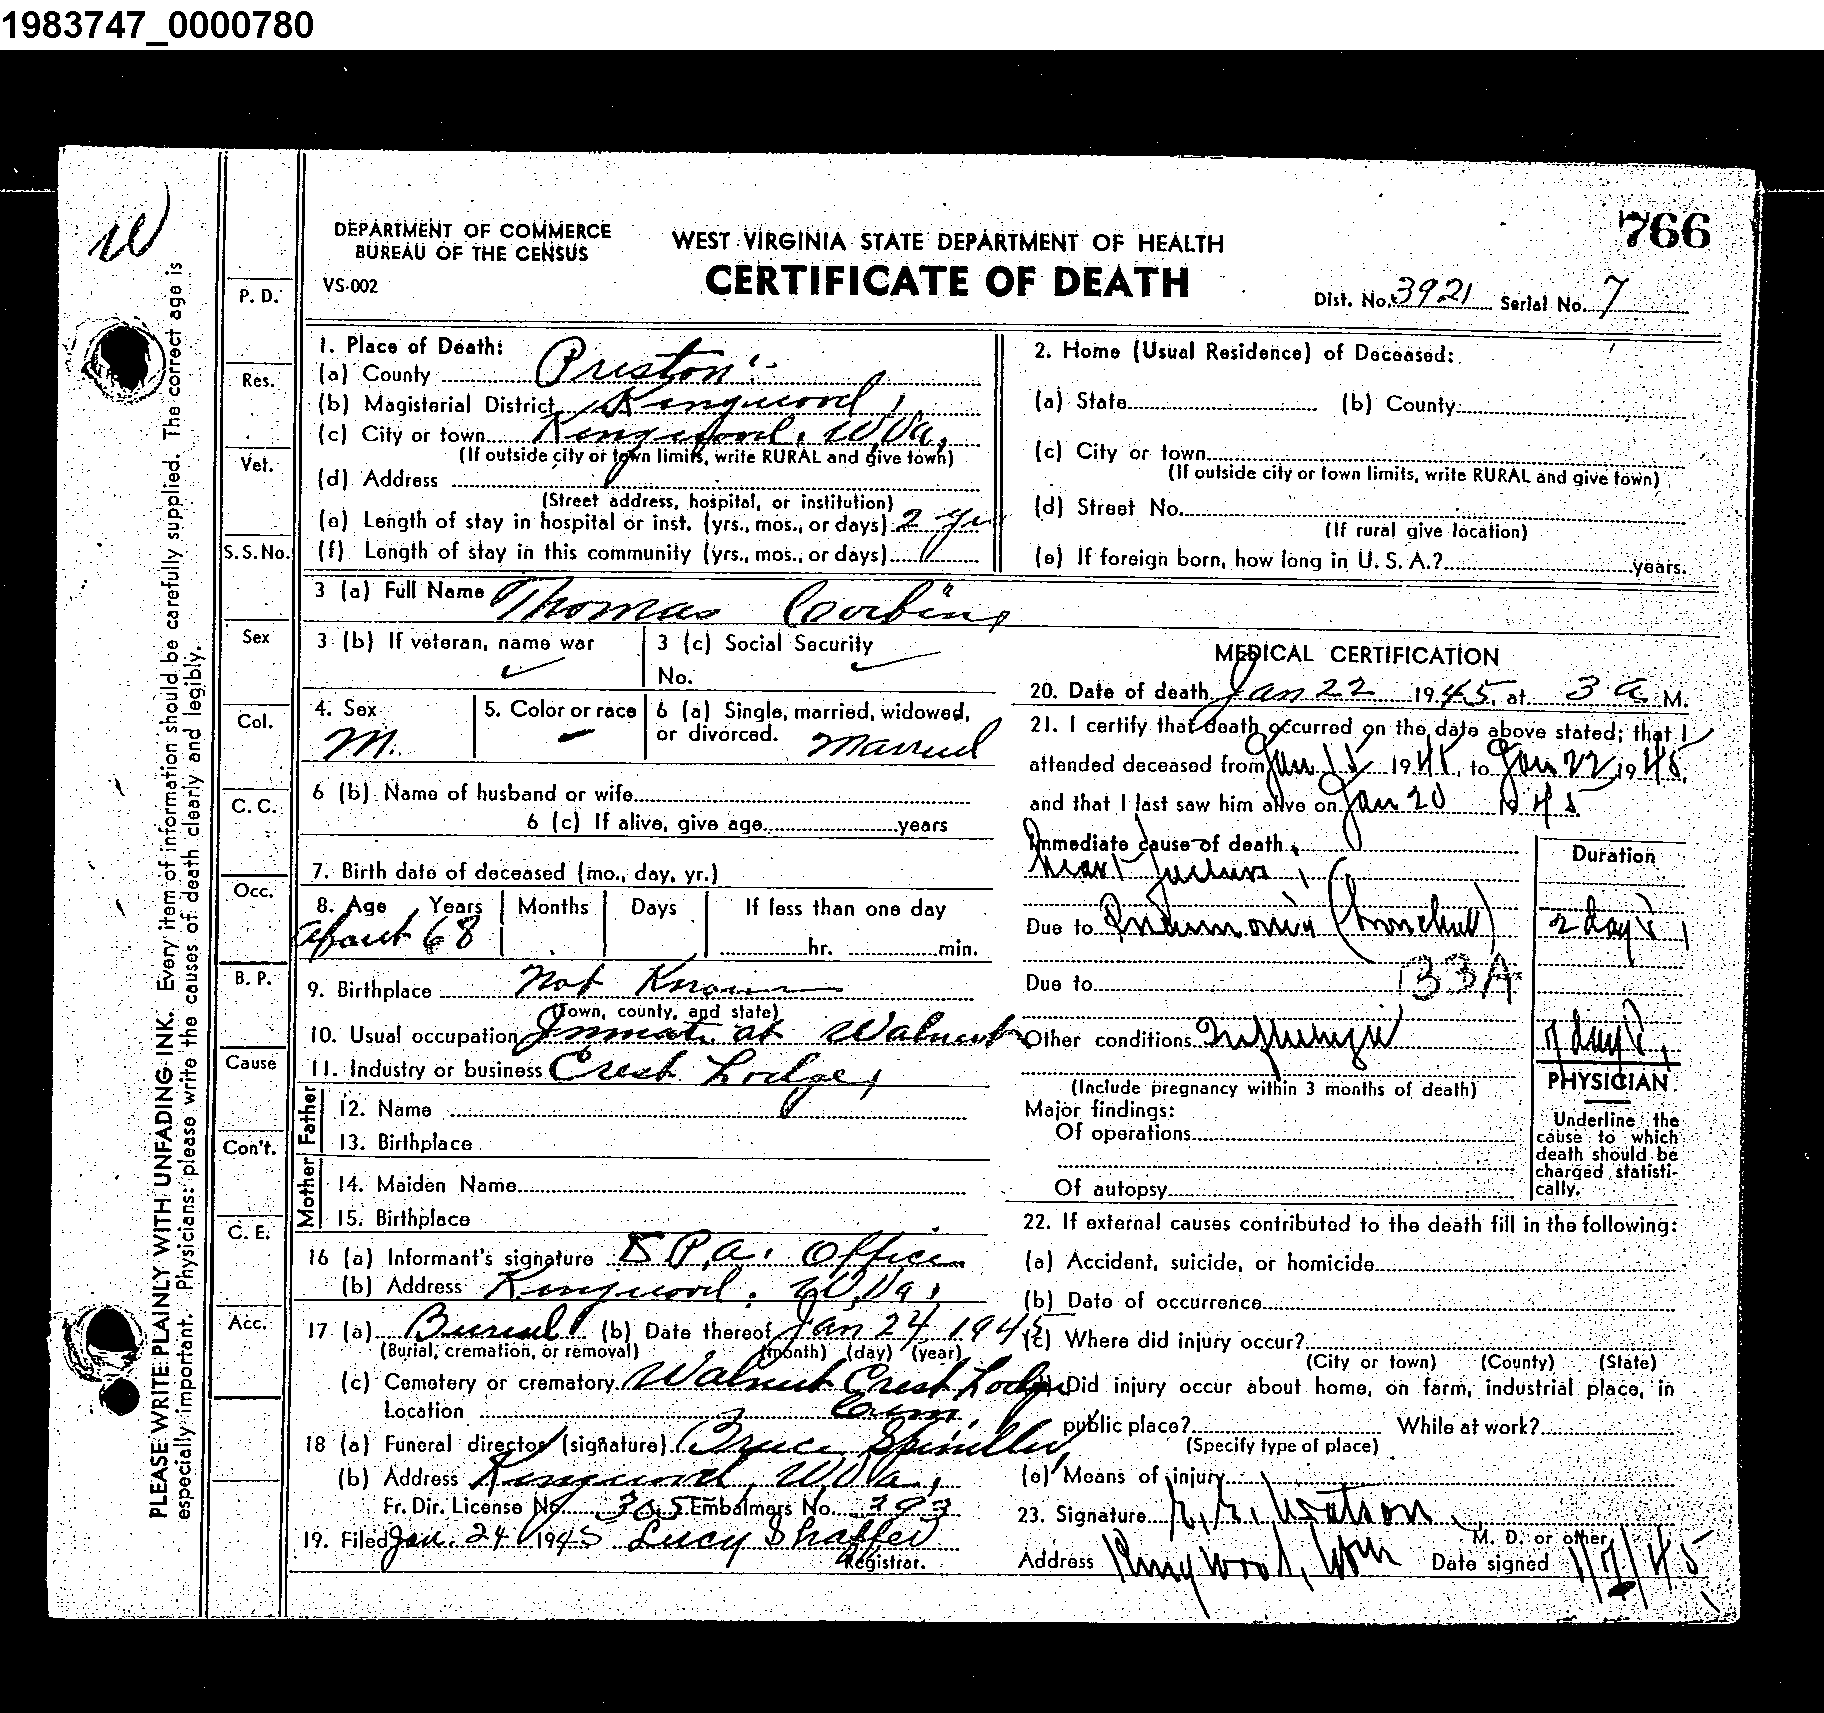 1983747_0000780
W
766
DEPARTMENT OF COMMERCE
BUREAU OF THE CENSUS
VS-002
WEST VIRGINIA STATE DEPARTMENT OF HEALTH
CERTIFICATE OF DEATH
Dist. No. 3921 Serial No. 7
PLEASE WRITE PLAINLY WITH UNFADING INK. Every item of information should be carefully supplied. The correct age is
especially important. Physicians: please write the causes of death clearly and legibly.
P. D.
Res.
Vet.
S.S.No.
Sex
Col.
C. C.
Occ.
B. P.
Cause
Con't.
C. E.
Acc.
1. Place of Death:
(a) County Preston
(b) Magisterial District Kingwood,
(c) City or town Kingwood, W.Va,
(If outside city or town limits, write RURAL and give town)
(d) Address
(Street address, hospital, or institution)
(e) Length of stay in hospital or inst. (yrs., mos., or days) 2 yrs
(f) Length of stay in this community (yrs., mos., or days)
2. Home (Usual Residence) of Deceased:
(a) State (b) County
(c) City or town
(If outside city or town limits, write RURAL and give town)
(d) Street No.
(If rural give location)
(e) If foreign born, how long in U. S. A.? years.
3 (a) Full Name Thomas Corbin,
3 (b) If veteran, name war ✓
3 (c) Social Security ✓
No.
4. Sex M.
5. Color or race -
6 (a) Single, married, widowed,
or divorced. Married
6 (b) Name of husband or wife
6 (c) If alive, give age years
7. Birth date of deceased (mo., day, yr.)
8. Age Years Months Days If less than one day
about 68 hr. min.
9. Birthplace Not Known
(Town, county, and state)
10. Usual occupation Inmate at Walnut
11. Industry or business Crest Lodge,
Father
12. Name
13. Birthplace
Mother
14. Maiden Name
15. Birthplace
16 (a) Informant's signature D P.A. Office
(b) Address Kingwood, W.Va,
17 (a) Burial (b) Date thereof Jan 24 1945
(Burial, cremation, or removal) (month) (day) (year)
(c) Cemetery or crematory Walnut Crest Lodge
Location Cem,
18 (a) Funeral director (signature) Bruce Spindler,
(b) Address Kingwood, W.Va,
Fr. Dir. License No. 305 Embalmers No. 393
19. Filed Jan. 24 1945 Lucy Shaffer
Registrar.
MEDICAL CERTIFICATION
20. Date of death Jan 22 1945, at 3 a M.
21. I certify that death occurred on the date above stated; that I
attended deceased from Jan 15 1945, to Jan 22, 1945,
and that I last saw him alive on Jan 20 1945
Immediate cause of death
Heart failure,
Duration
Due to Pneumonia (bronchial) 2 days,
Due to 133A
Other conditions Influenza 7 days,
(Include pregnancy within 3 months of death)
Major findings:
Of operations
Of autopsy
PHYSICIAN
Underline the
cause to which
death should be
charged statisti-
cally.
22. If external causes contributed to the death fill in the following:
(a) Accident, suicide, or homicide
(b) Date of occurrence
(c) Where did injury occur?
(City or town) (County) (State)
Did injury occur about home, on farm, industrial place, in
public place? While at work?
(Specify type of place)
(e) Means of injury
23. Signature Watson
M. D. or other
Address Kingwood, Date signed